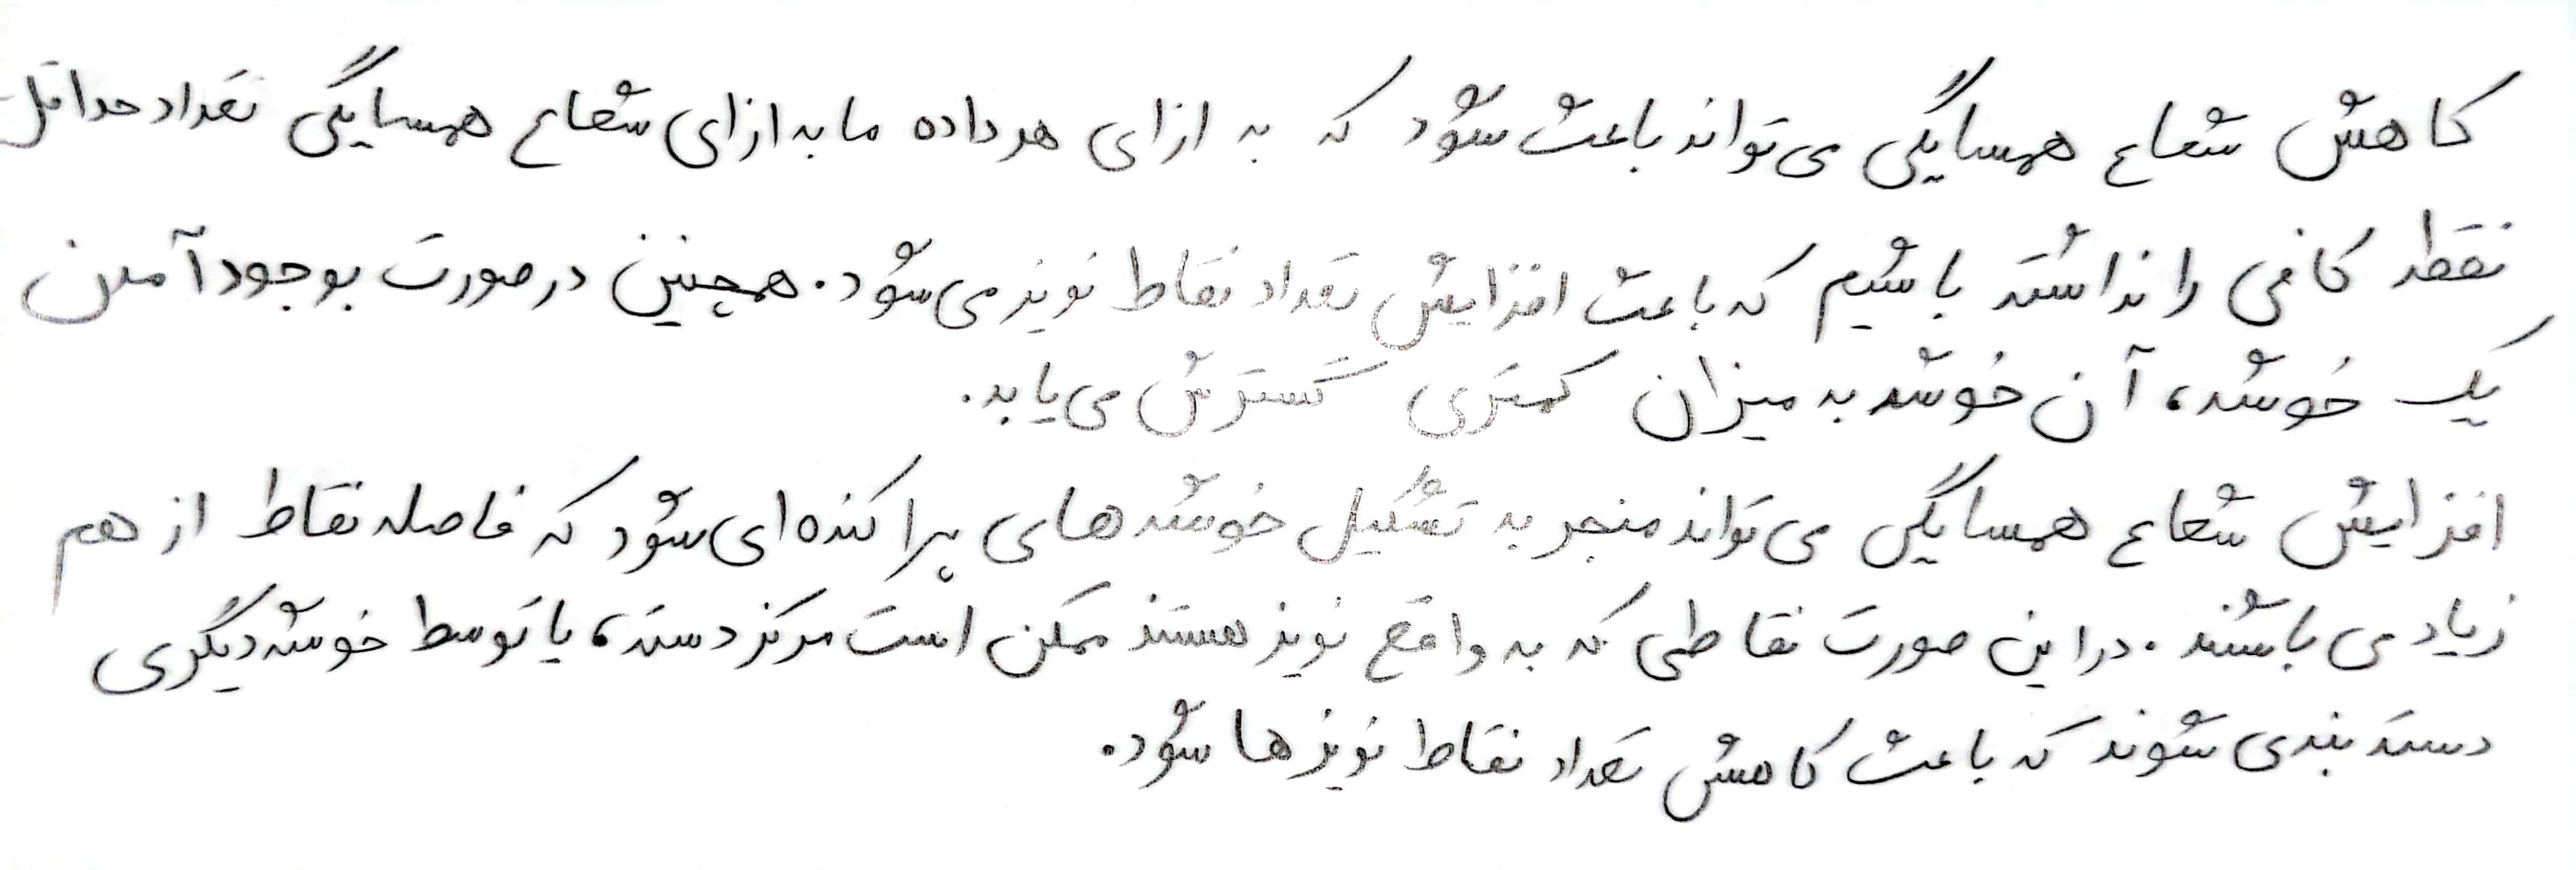 کاهش شعاع همسایگی می‌تواند باعث شود که به ازای هر داده ما به ازای شعاع همسایگی تعداد حداقل
نقطه کافی را نداشته باشیم که باعث افزایش تعداد نقاط نویز می‌شود. همچنین در صورت بوجود آمدن
یک خوشه، آن خوشه به میزان کمتری گسترش می‌یابد.
افزایش شعاع همسایگی می‌تواند منجر به تشکیل خوشه‌های پراکنده‌ای شود که فاصله نقاط از هم
زیاد می باشند. در این صورت نقاطی که به واقع نویز هستند ممکن است مرکز دسته، یا توسط خوشه دیگری
دسته بندی شوند که باعث کاهش تعداد نقاط نویزها شود.